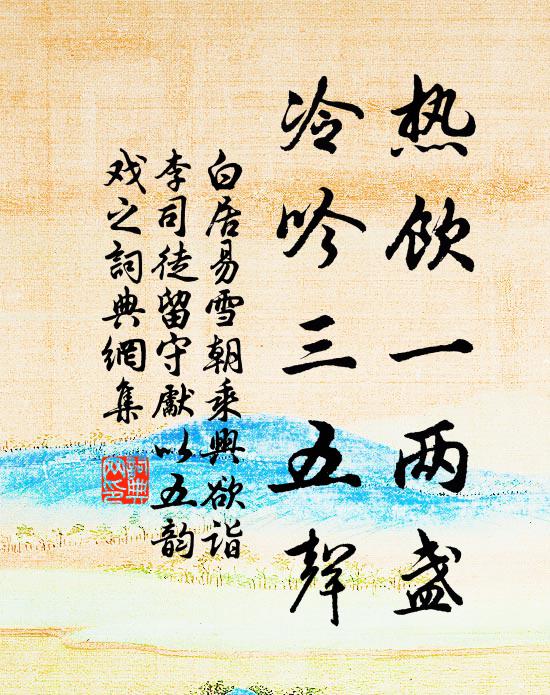 热饮一两盏
冷吟三五聲
白居易雪朝乘興欲诣
李司徒留守獻以五韵
戏之詞典網集